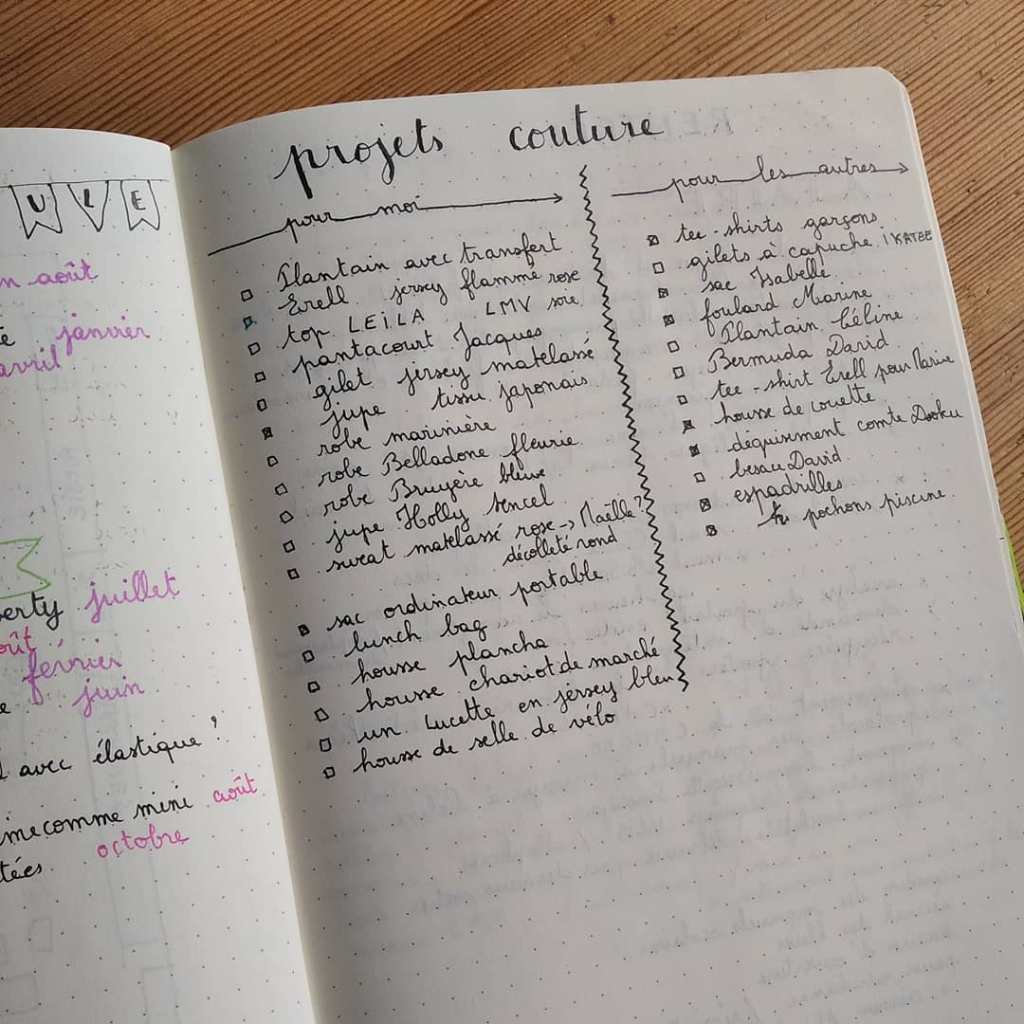 ULE
août
janvier
avril
erty juillet
août
février
juin
avec élastique ?
comme mini août
octobre
projets couture
pour moi
Plantain avec transfert
Erell jersey flammé rose
top LEILA LMV soie
pantacourt Jacques
gilet jersey matelassé
jupe tissu japonais
robe marinière
robe Belladone fleurie
robe Bruyère bleue
jupe Holly tencel
sweat matelassé rose -> Maëlle ?
décolleté rond
sac ordinateur portable
lunch bag
housse plancha
housse chariot de marché
un Lucette en jersey bleu
housse de selle de vélo
pour les autres
tee-shirts garçons
gilets à capuche IKATEE
sac Isabelle
foulard Marine
Plantain Céline
Bermuda David
tee-shirt Erell pour Marine
housse de couette
déguisement comte Dooku
David
espadrilles
pochons piscine